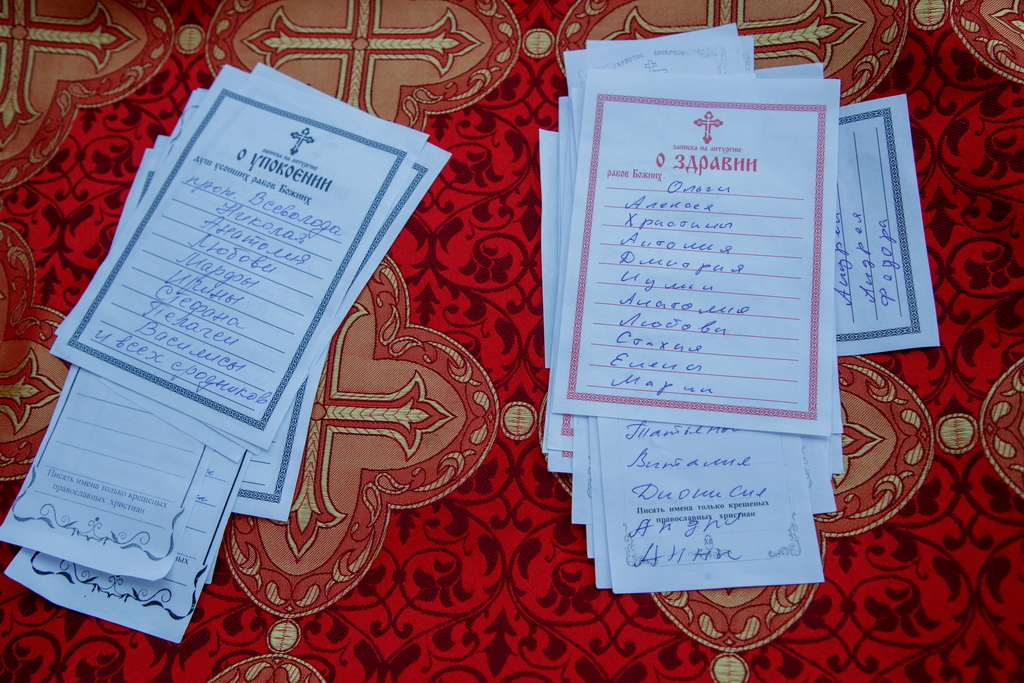 записка на литургию
О УПОКОЕНИИ
душ усопших рабов Божиих
прот. Всеволода
Николая
Анатолия
Любови
Марфы
Ирины
Стефана
Пелагеи
Василисы
и всех сродников
Писать имена только крещеных
православных христиан
записка на литургию
О ЗДРАВИИ
рабов Божиих
Ольги
Алексея
Христины
Антолия
Дмитрия
Анатолия
Любови
Стахия
Елены
Марии
Татьяны
Виталия
Дионисия
Писать имена только крещеных
православных христиан
Андрея
Федора